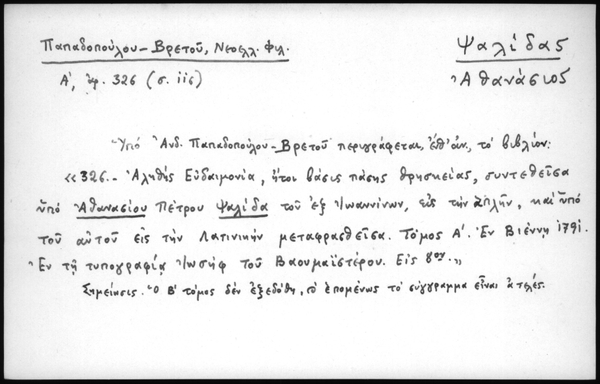 Παπαδοπούλου-Βρετοῦ, Νεοελλ. Φιλ.
Α', ἀρ. 326 (σ. ιις)
Ψαλίδας
Ἀθανάσιος
Ὑπό Ἀνδ. Παπαδοπούλου-Βρετοῦ περιγράφεται, ἐπ' ἀν., τό βιβλίον:
«326.- Ἀληθὴς Εὐδαιμονία, ἤτοι βάσις πάσης θρησκείας, συντεθεῖσα
ὑπό Ἀθανασίου Πέτρου Ψαλίδα τοῦ ἐξ Ἰωαννίνων, εἰς τήν ἁπλῆν, καί ὑπό
τοῦ αὐτοῦ εἰς τήν Λατινικήν μεταφρασθεῖσα. Τόμος Α'. Ἐν Βιέννῃ 1791.
Ἐν τῇ τυπογραφίᾳ Ἰωσήφ τοῦ Βαουμαϊστέρου. Εἰς 8ον.»
Σημείωσις. Ὁ Β' τόμος δέν ἐξεδόθη, ἑπομένως τό σύγγραμμα εἶναι ἀτελές.